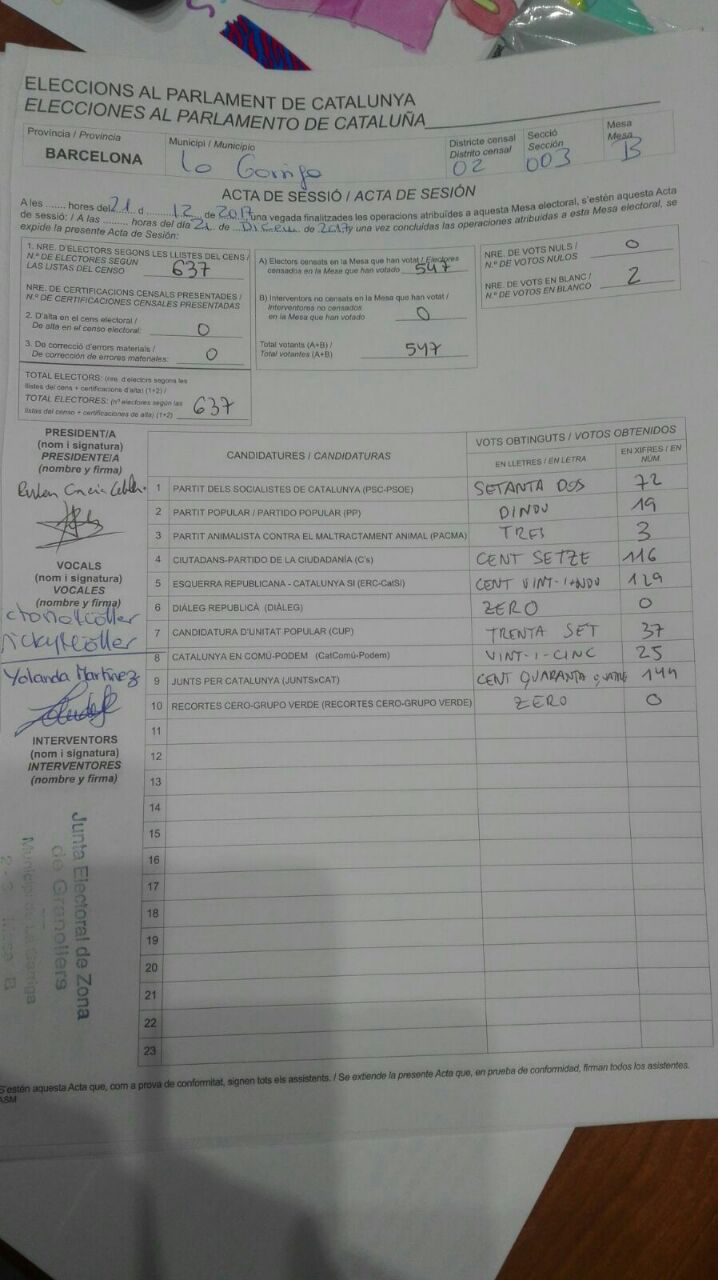 ELECCIONS AL PARLAMENT DE CATALUNYA
ELECCIONES AL PARLAMENTO DE CATALUÑA
Provincia / Provincia
BARCELONA
Municipi / Municipio
La Garriga
Districte censal
Distrito censal
02
Secció
Sección
003
Mesa
Mesa
B
ACTA DE SESSIÓ / ACTA DE SESIÓN
A les ....... hores del 21 d ........ 12 de 2017 una vegada finalitzades les operacions atribuïdes a aquesta Mesa electoral, s'estén aquesta Acta
de sessió: / A las ........ horas del día 21 de Dicem. de 2017 y una vez concluidas las operaciones atribuidas a esta Mesa electoral, se
expide la presente Acta de Sesión:
1. NRE. D'ELECTORS SEGONS LES LLISTES DEL CENS /
N.º DE ELECTORES SEGÚN
LAS LISTAS DEL CENSO 637
NRE. DE CERTIFICACIONS CENSALS PRESENTADES /
N.º DE CERTIFICACIONES CENSALES PRESENTADAS
2. D'alta en el cens electoral /
De alta en el censo electoral: 0
3. De correcció d'errors materials /
De corrección de errores materiales: 0
TOTAL ELECTORS: (nre. d'electors segons les
llistes del cens + certificacions d'alta) (1+2) /
TOTAL ELECTORES: (nº electores según las
listas del censo + certificaciones de alta) (1+2) 637
A) Electors censats en la Mesa que han votat / Electores
censados en la Mesa que han votado 547
B) Interventors no censats en la Mesa que han votat /
Interventores no censados
en la Mesa que han votado 0
Total votants (A+B) /
Total votantes (A+B) 547
NRE. DE VOTS NULS /
N.º DE VOTOS NULOS 0
NRE. DE VOTS EN BLANC /
N.º DE VOTOS EN BLANCO 2
PRESIDENT/A
(nom i signatura)
PRESIDENTE/A
(nombre y firma)
VOCALS
(nom i signatura)
VOCALES
(nombre y firma)
Yolanda Martínez
INTERVENTORS
(nom i signatura)
INTERVENTORES
(nombre y firma)
Junta Electoral de Zona
de Granollers
Municipi de La Garriga
CANDIDATURES / CANDIDATURAS
VOTS OBTINGUTS / VOTOS OBTENIDOS
EN LLETRES / EN LETRA
EN XIFRES / EN NÚM.
1 PARTIT DELS SOCIALISTES DE CATALUNYA (PSC-PSOE) SETANTA DOS 72
2 PARTIT POPULAR / PARTIDO POPULAR (PP) DINOU 19
3 PARTIT ANIMALISTA CONTRA EL MALTRACTAMENT ANIMAL (PACMA) TRES 3
4 CIUTADANS-PARTIDO DE LA CIUDADANÍA (C's) CENT SETZE 116
5 ESQUERRA REPUBLICANA - CATALUNYA SÍ (ERC-CatSí) CENT VINT-I-NOU 129
6 DIÀLEG REPUBLICÀ (DIÀLEG) ZERO 0
7 CANDIDATURA D'UNITAT POPULAR (CUP) TRENTA SET 37
8 CATALUNYA EN COMÚ-PODEM (CatComú-Podem) VINT-I-CINC 25
9 JUNTS PER CATALUNYA (JUNTSxCAT) CENT QUARANTA QUATRE 144
10 RECORTES CERO-GRUPO VERDE (RECORTES CERO-GRUPO VERDE) ZERO 0
11
12
13
14
15
16
17
18
19
20
21
22
23
S'estén aquesta Acta que, com a prova de conformitat, signen tots els assistents. / Se extiende la presente Acta que, en prueba de conformidad, firman todos los asistentes.